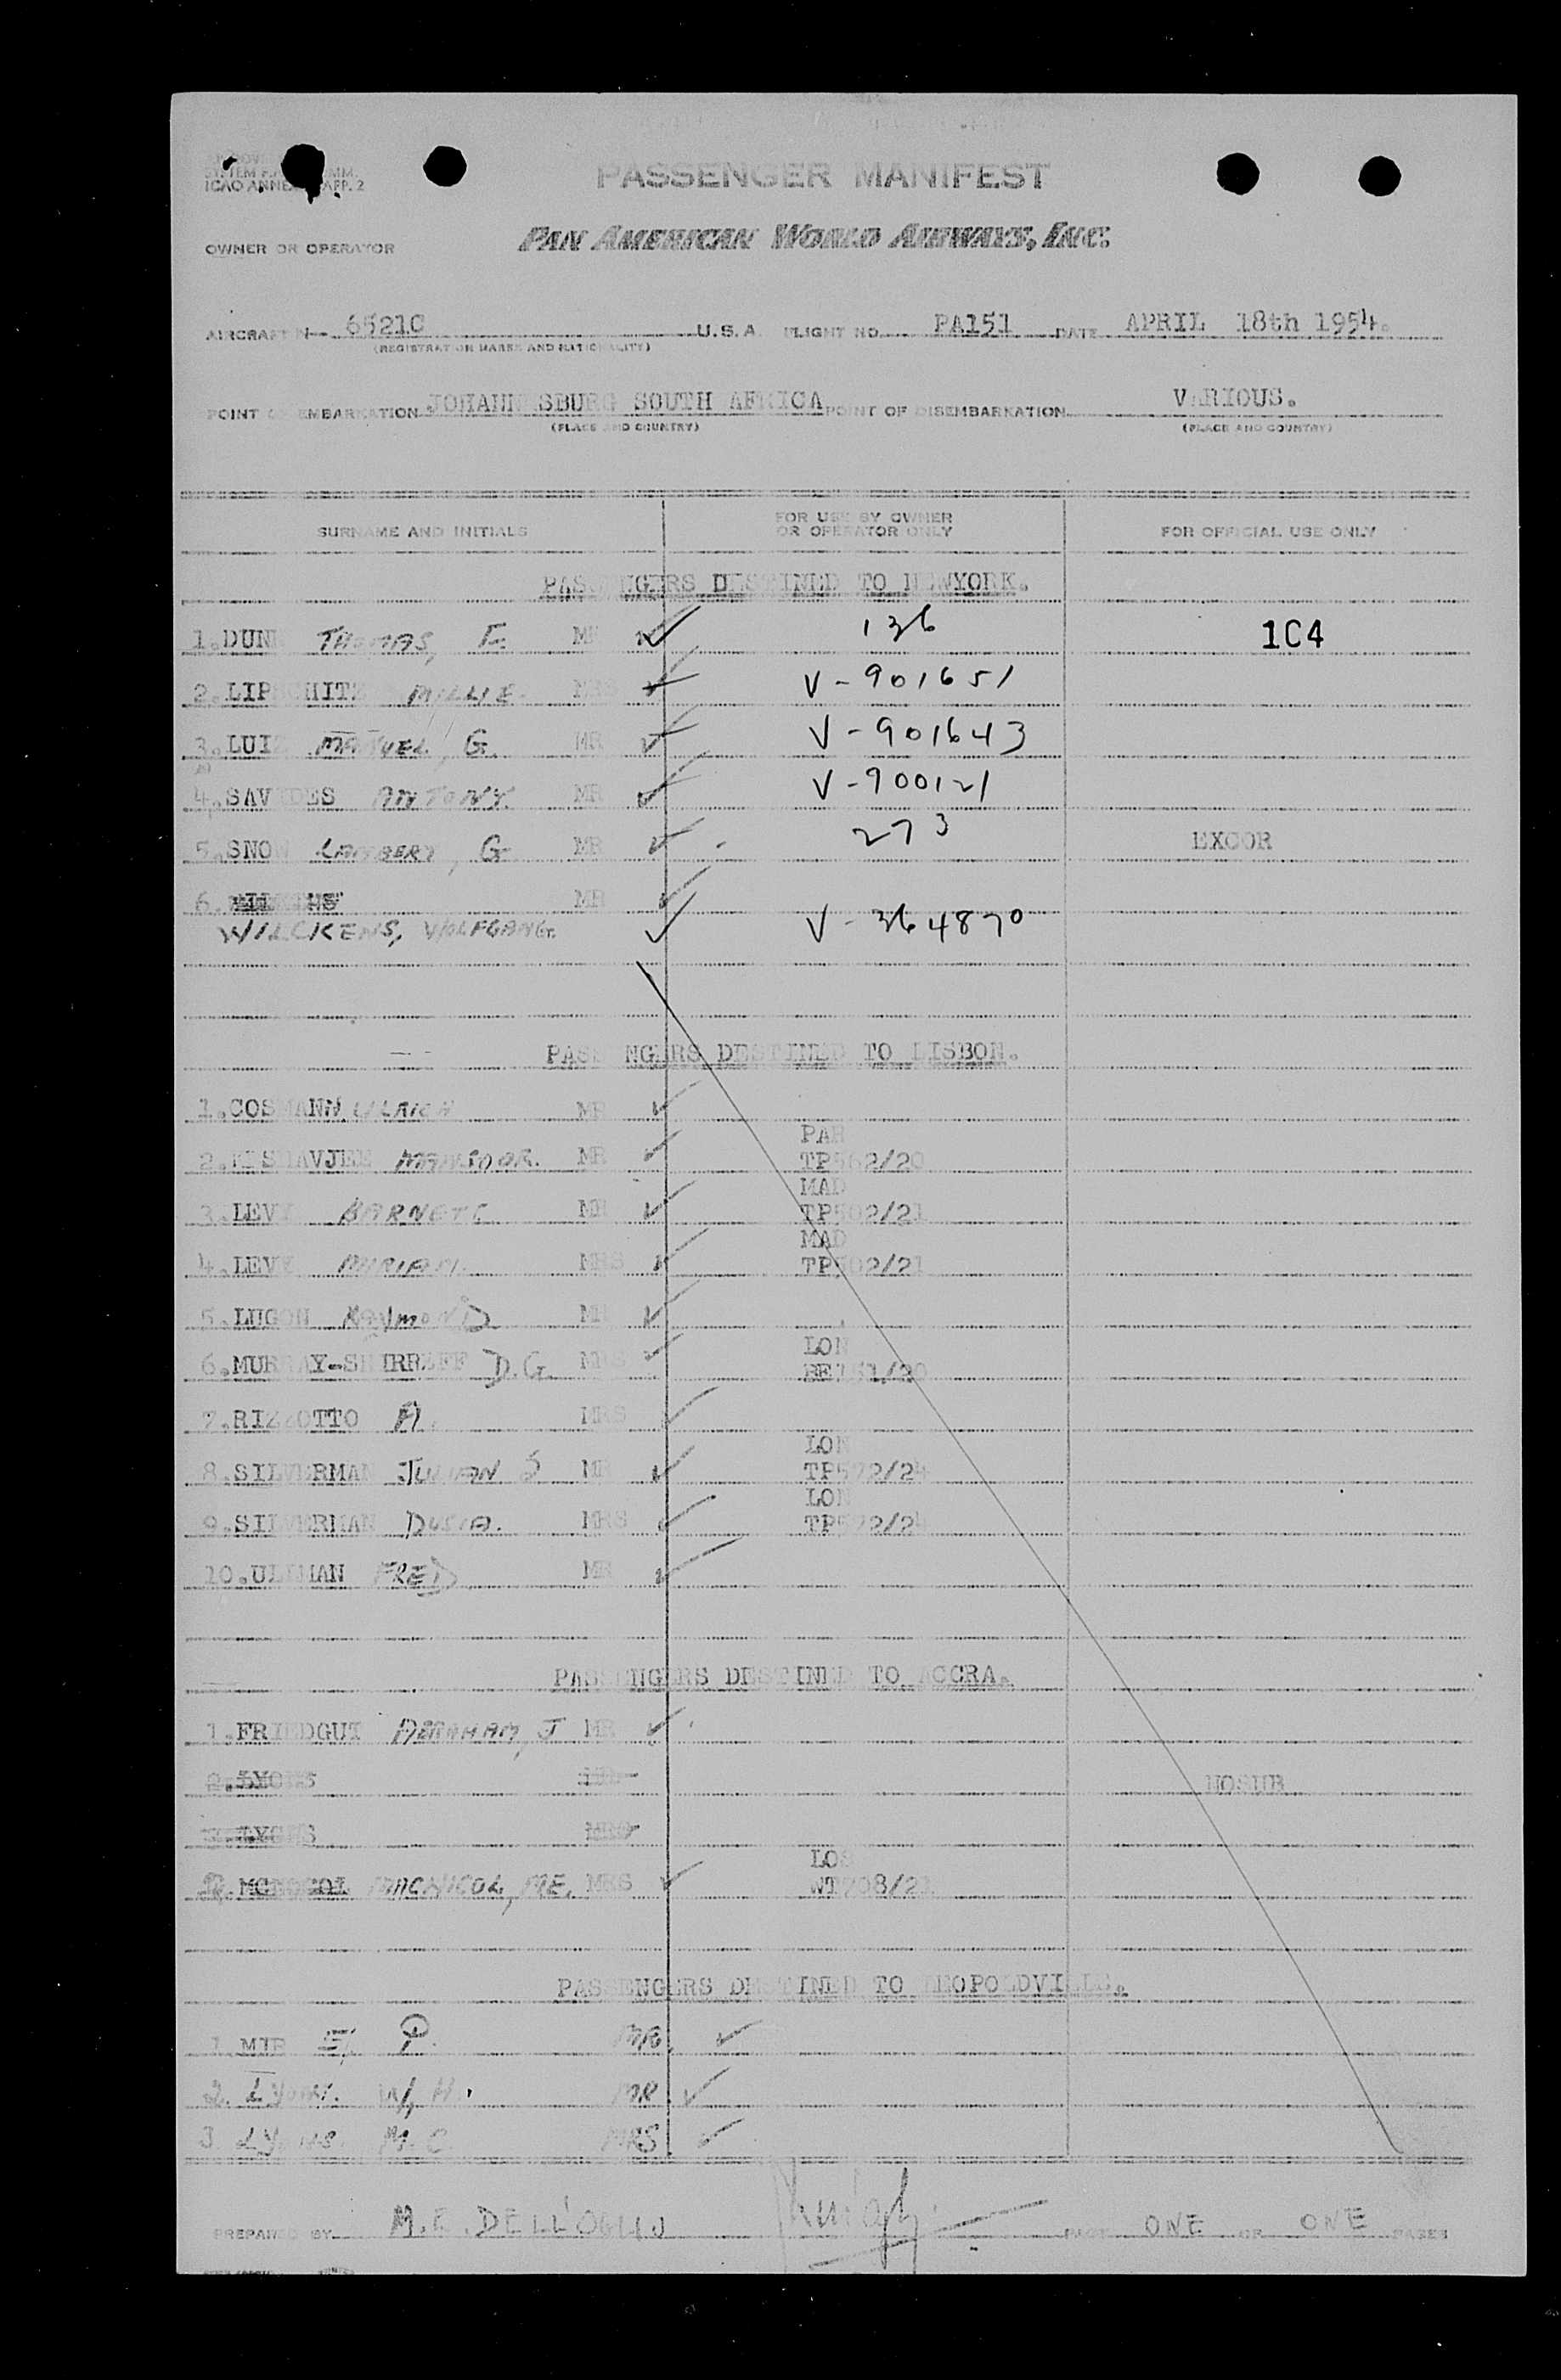 ICAO ANNEX APP. 2
PASSENGER MANIFEST
OWNER OR OPERATOR PAN AMERICAN WORLD AIRWAYS, INC.
AIRCRAFT N- 6521C U.S.A. FLIGHT NO. PA151 DATE APRIL 18th 1954.
(REGISTRATION MARKS AND NATIONALITY)
POINT OF EMBARKATION JOHANNESBURG SOUTH AFRICA POINT OF DISEMBARKATION VARIOUS.
(PLACE AND COUNTRY) (PLACE AND COUNTRY)
SURNAME AND INITIALS FOR USE BY OWNER OR OPERATOR ONLY FOR OFFICIAL USE ONLY
PASSENGERS DESTINED TO NEWYORK.
1.DUNN THOMAS, F. MR 136 1C4
2.LIPSCHITZ MILLIE MRS V-901651
3.LUIZ MANUEL, G. MR V-901643
4.SAVIDES ANTONY MR V-900121
5.SNOW LAMBERT, G MR 273 EXCOR
6. MR
WILCKENS, WOLFGANG. V-364870
PASSENGERS DESTINED TO LISBON.
1.COSMANN ULRICH MR
PAR
2. MANSOOR. MR TP562/20
MAD
3.LEVY BARNETT MR TP502/21
MAD
4.LEVY MIRIAM. MRS TP502/21
5.LUGON RAYMOND MR
LON
6.MURRAY-SHIRREFF D.G. MRS BE151/20
7.RIZZOTTO A. MRS
LON
8.SILVERMAN JULIAN S MR TP572/24
LON
9.SILVERMAN MRS TP572/24
10.ULLMAN FRED MR
PASSENGERS DESTINED TO ACCRA.
1.FRIEDGUT ABRAHAM, J MR
NOSUB
3.LYONS MRS
LOS
MACNICOL, ME. MRS WT708/21
PASSENGERS DESTINED TO LEOPOLDVILLE.
1. E, P. MR.
2. LYONS. W, H. MR
3 LYONS. M. C. MRS
PREPARED BY M. C. DELL'OGLIO PAGE ONE OF ONE PAGES